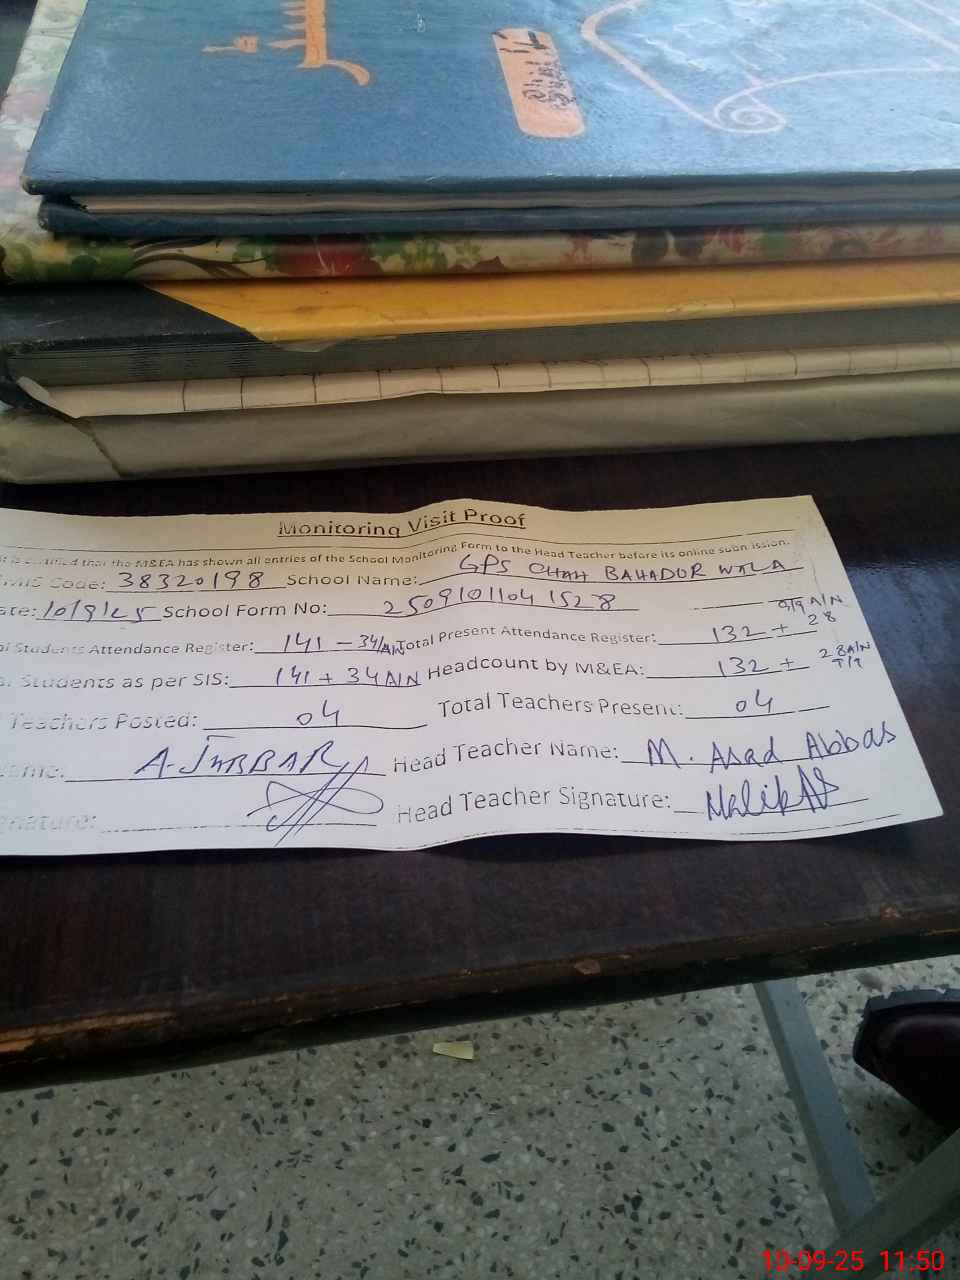 Monitoring Visit Proof
that the M&EA has shown all entries of the School Monitoring Form to the Head Teacher before its online submission.
Code: 38320198 School Name: GPS CHAH BAHADUR WALA
10/9/25 School Form No: 2509101104 1528
Students Attendance Register: 141 - 34/A/N Total Present Attendance Register: 132 + 28 A/N
Students as per SIS: 141 + 34 A/N Headcount by M&EA: 132 + 28 A/N
Teachers Posted: 04 Total Teachers Present: 04
A. JABBAR Head Teacher Name: M. Asad Abbas
Head Teacher Signature: Malik
10-09-25 11:50